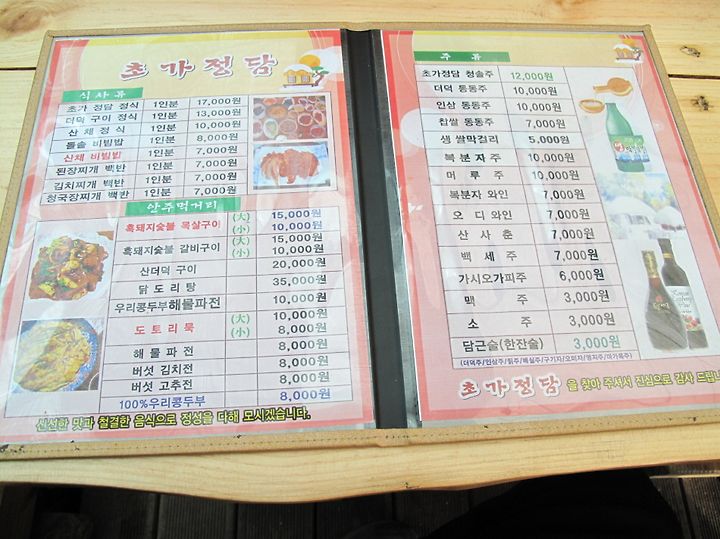 초가정담
식사류
초가 정담 정식 1인분 17,000원
더덕 구이 정식 1인분 13,000원
산채 정식 1인분 10,000원
돌솥 비빔밥 1인분 8,000원
산채 비빔밥 1인분 7,000원
된장찌개 백반 1인분 7,000원
김치찌개 백반 1인분 7,000원
청국장찌개 백반 1인분 7,000원
안주먹거리
흑돼지숯불 목살구이 (大) 15,000원
(小) 10,000원
흑돼지숯불 갈비구이 (大) 15,000원
(小) 10,000원
산더덕 구이 20,000원
닭도리탕 35,000원
우리콩두부해물파전 10,000원
도토리묵 (大) 10,000원
(小) 8,000원
해물파전 8,000원
버섯 김치전 8,000원
버섯 고추전 8,000원
100%우리콩두부 8,000원
신선한 맛과 청결한 음식으로 정성을 다해 모시겠습니다.
주류
초가정담 청솔주 12,000원
더덕 동동주 10,000원
인삼 동동주 10,000원
찹쌀 동동주 7,000원
생 쌀막걸리 5,000원
복분자주 10,000원
머루주 10,000원
복분자 와인 7,000원
오디와인 7,000원
산사춘 7,000원
백세주 7,000원
가시오가피주 6,000원
맥주 3,000원
소주 3,000원
담근술(한잔술) 3,000원
초가정담 을 찾아 주셔서 진심으로 감사 드립니다